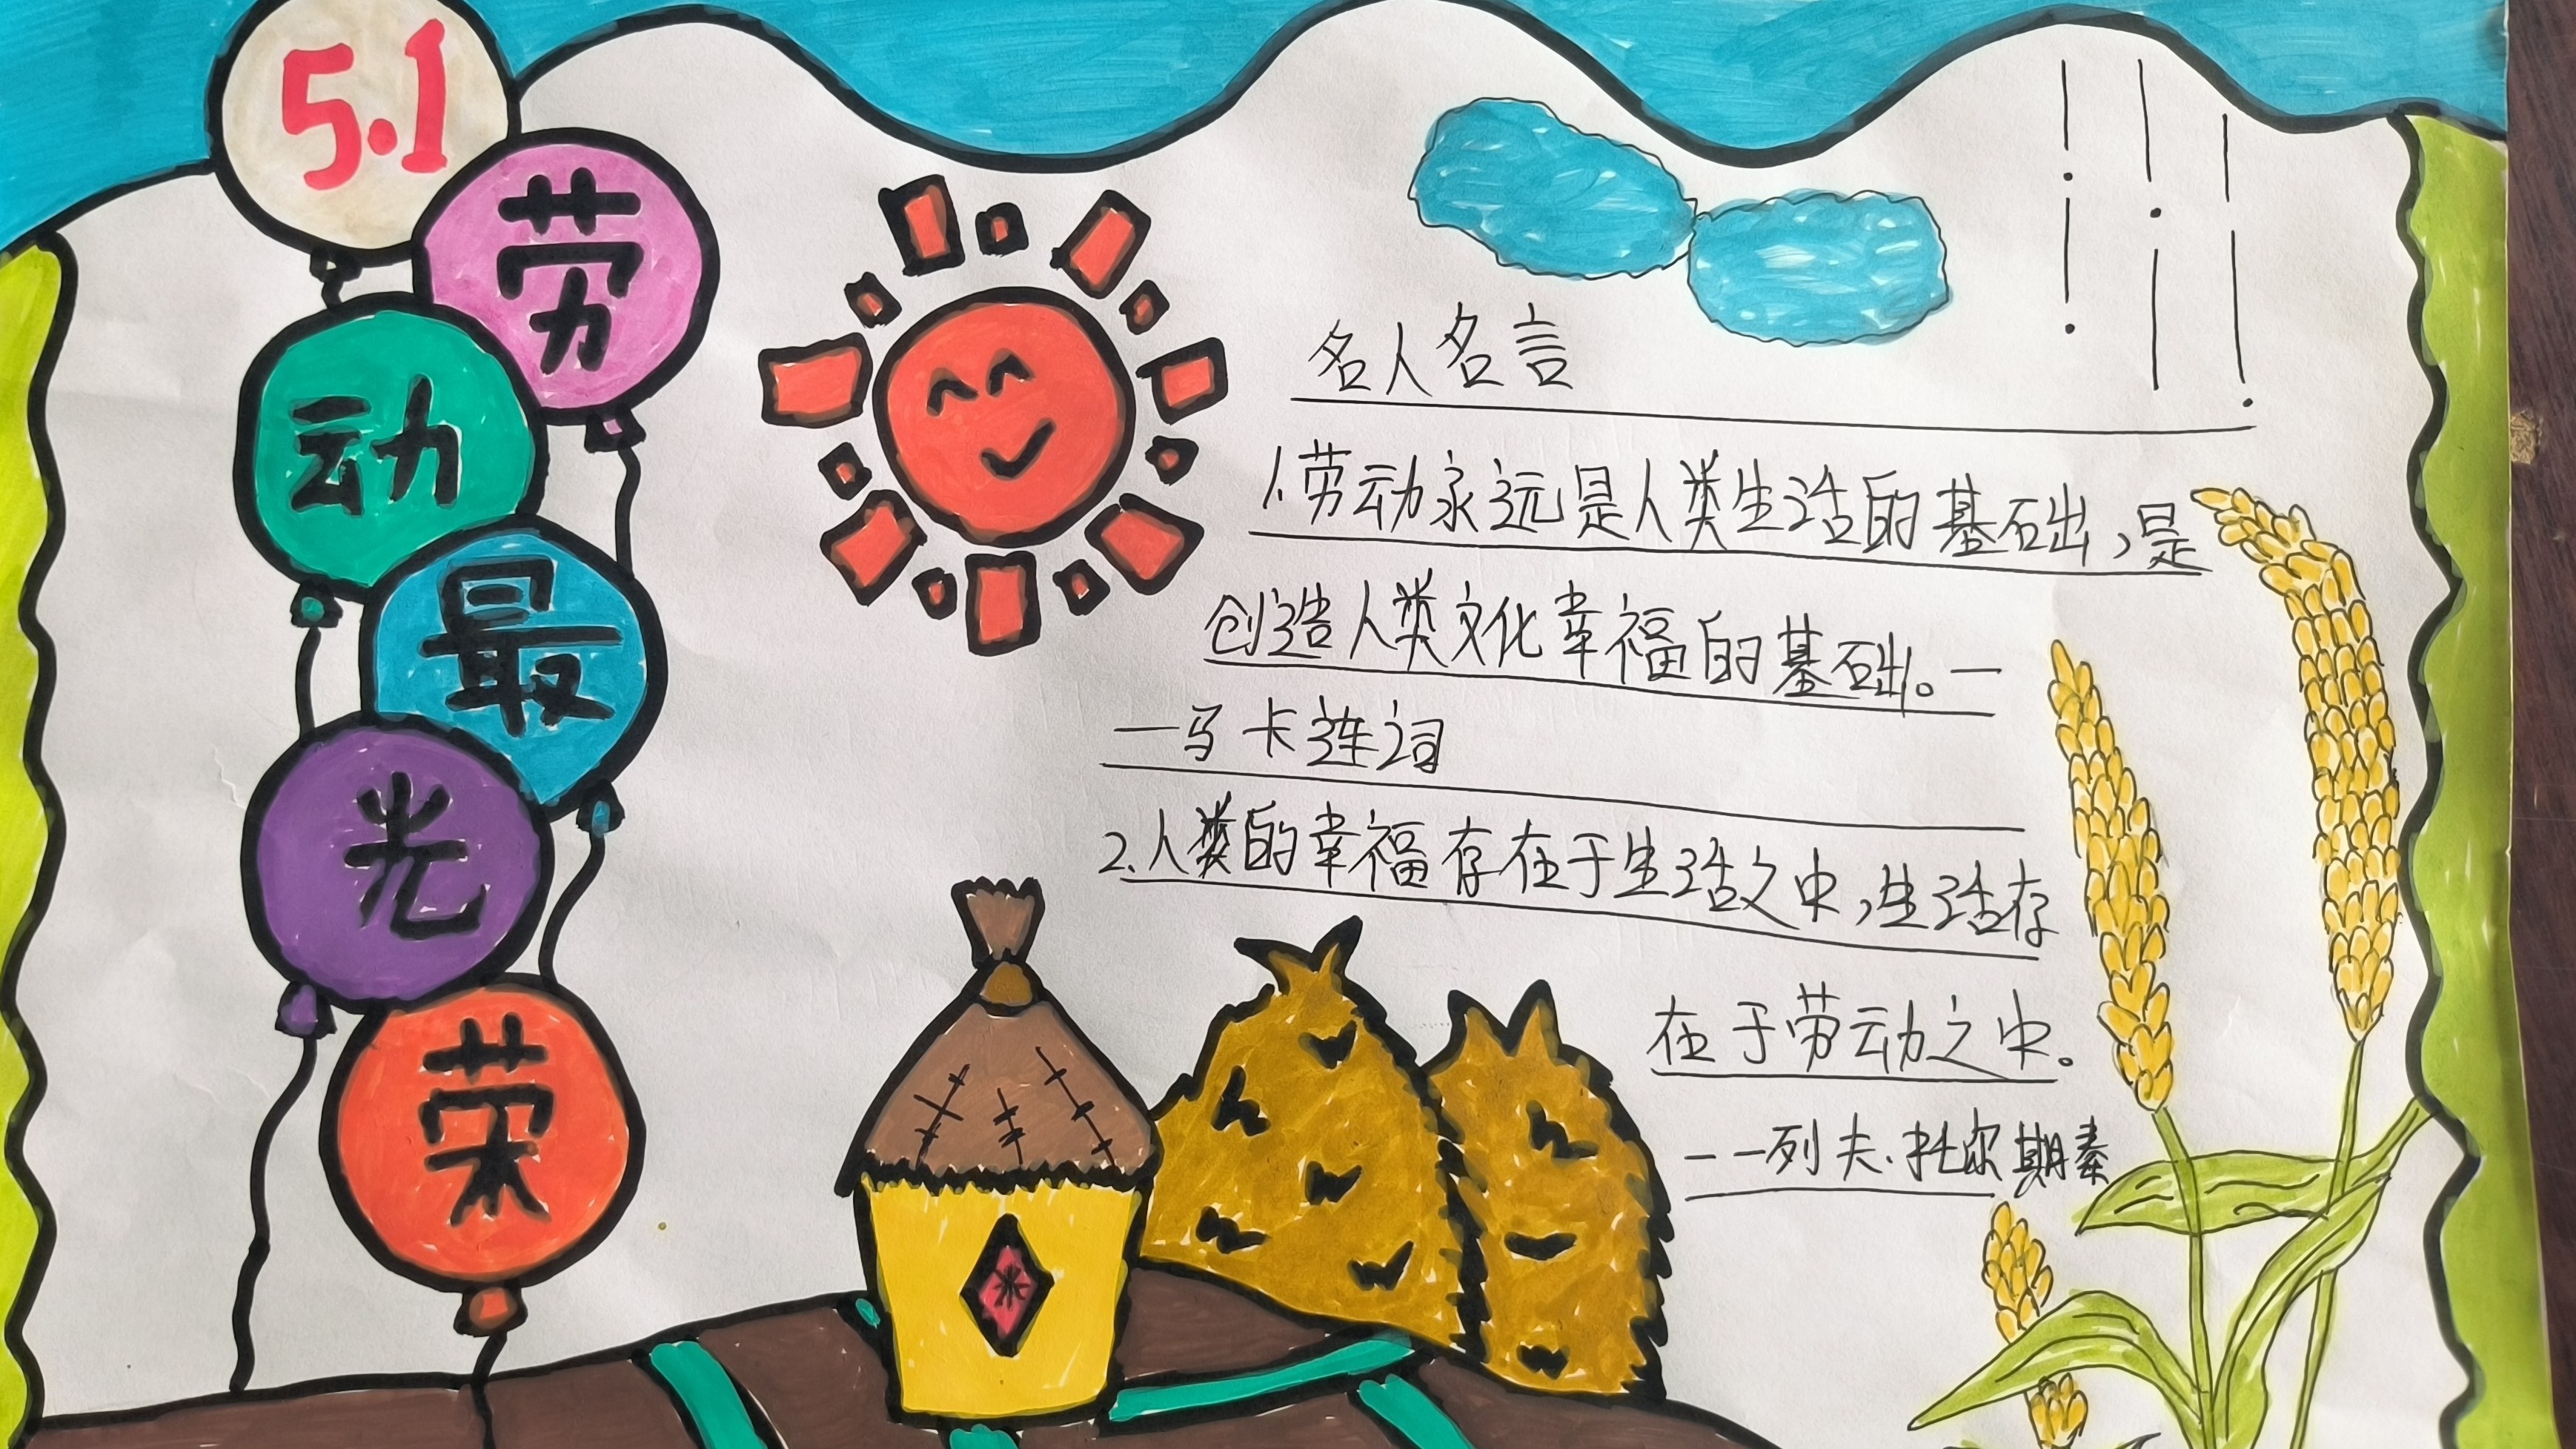 5.1
劳
动
最
光
荣
名人名言
1.劳动永远是人类生活的基础,是
创造人类文化幸福的基础。—
—马卡连词
2.人类的幸福存在于生活之中,生活存
在于劳动之中。
——列夫.托尔期泰
米